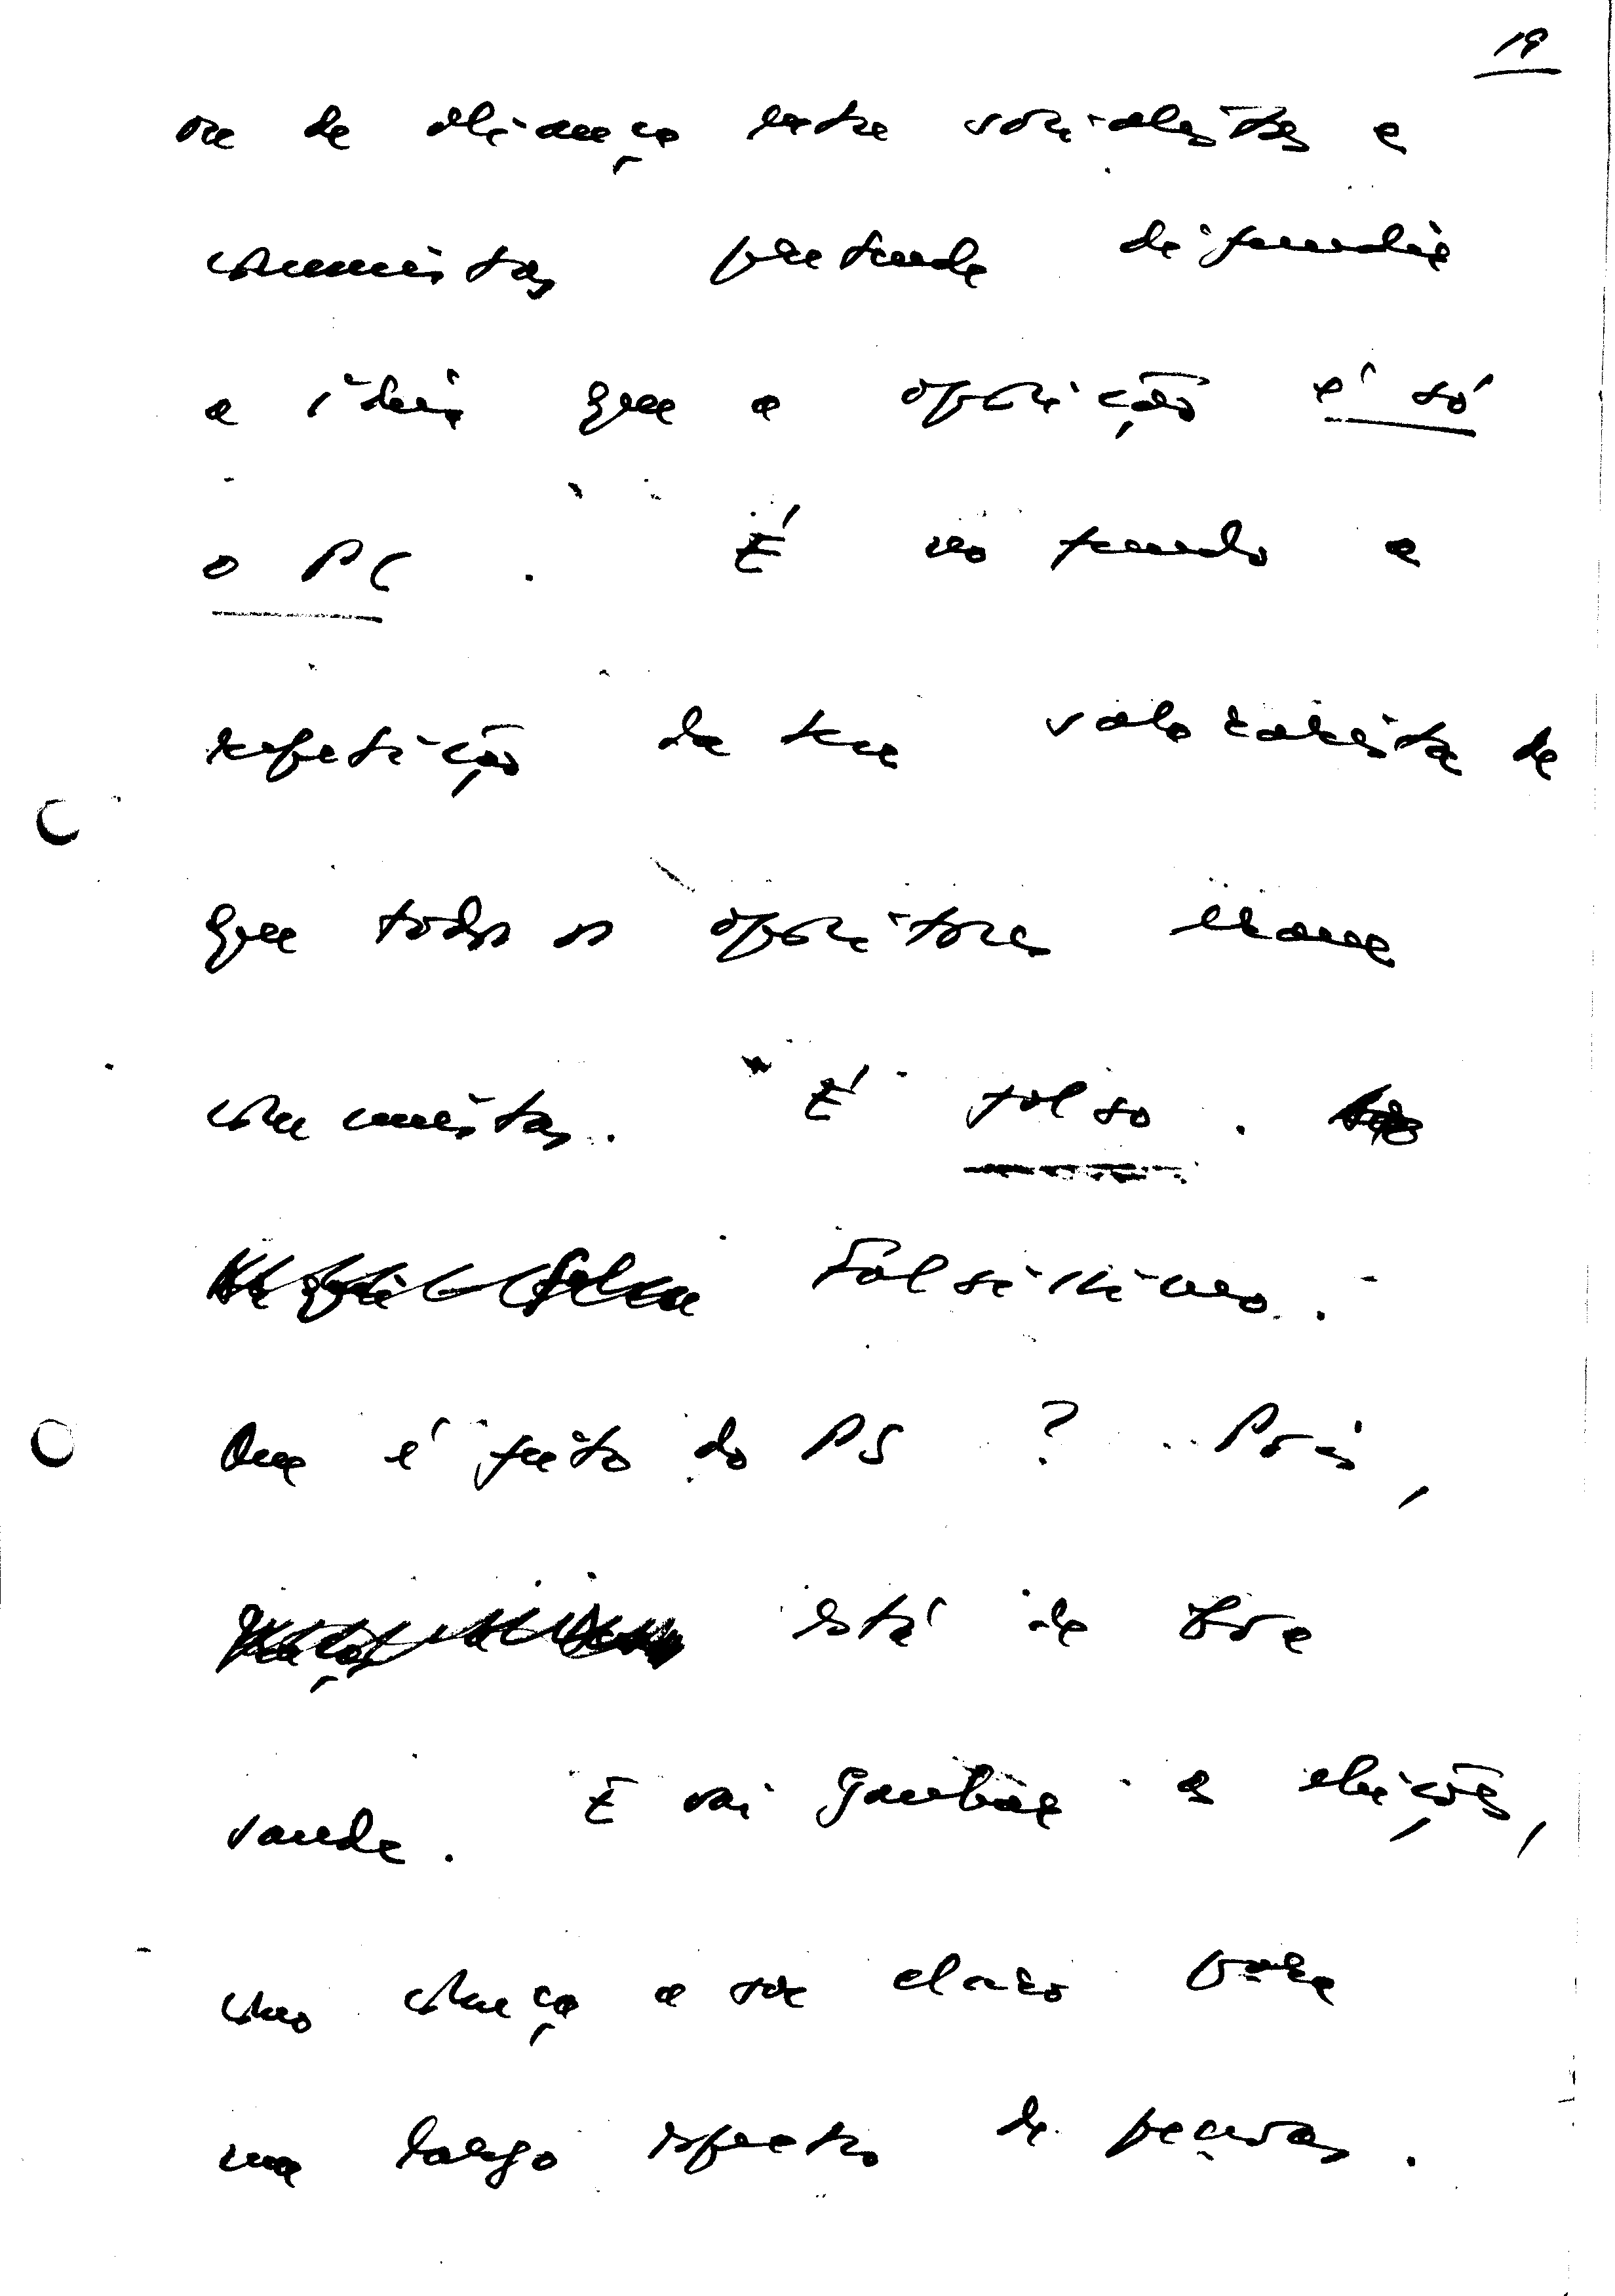 19
ou de aliança entre socialistas e
comunistas pretende difundir
a ideia que a oposição é só
o PC. É no fundo a
repetição da tese salazarista de
que todos os opositores eram
comunistas. É falso.
Falsíssimo.
Que é feito do PS? Pois,
está de boa
saúde. E vai ganhar as eleições,
como começa a ser claro para
um largo espectro de pessoas.